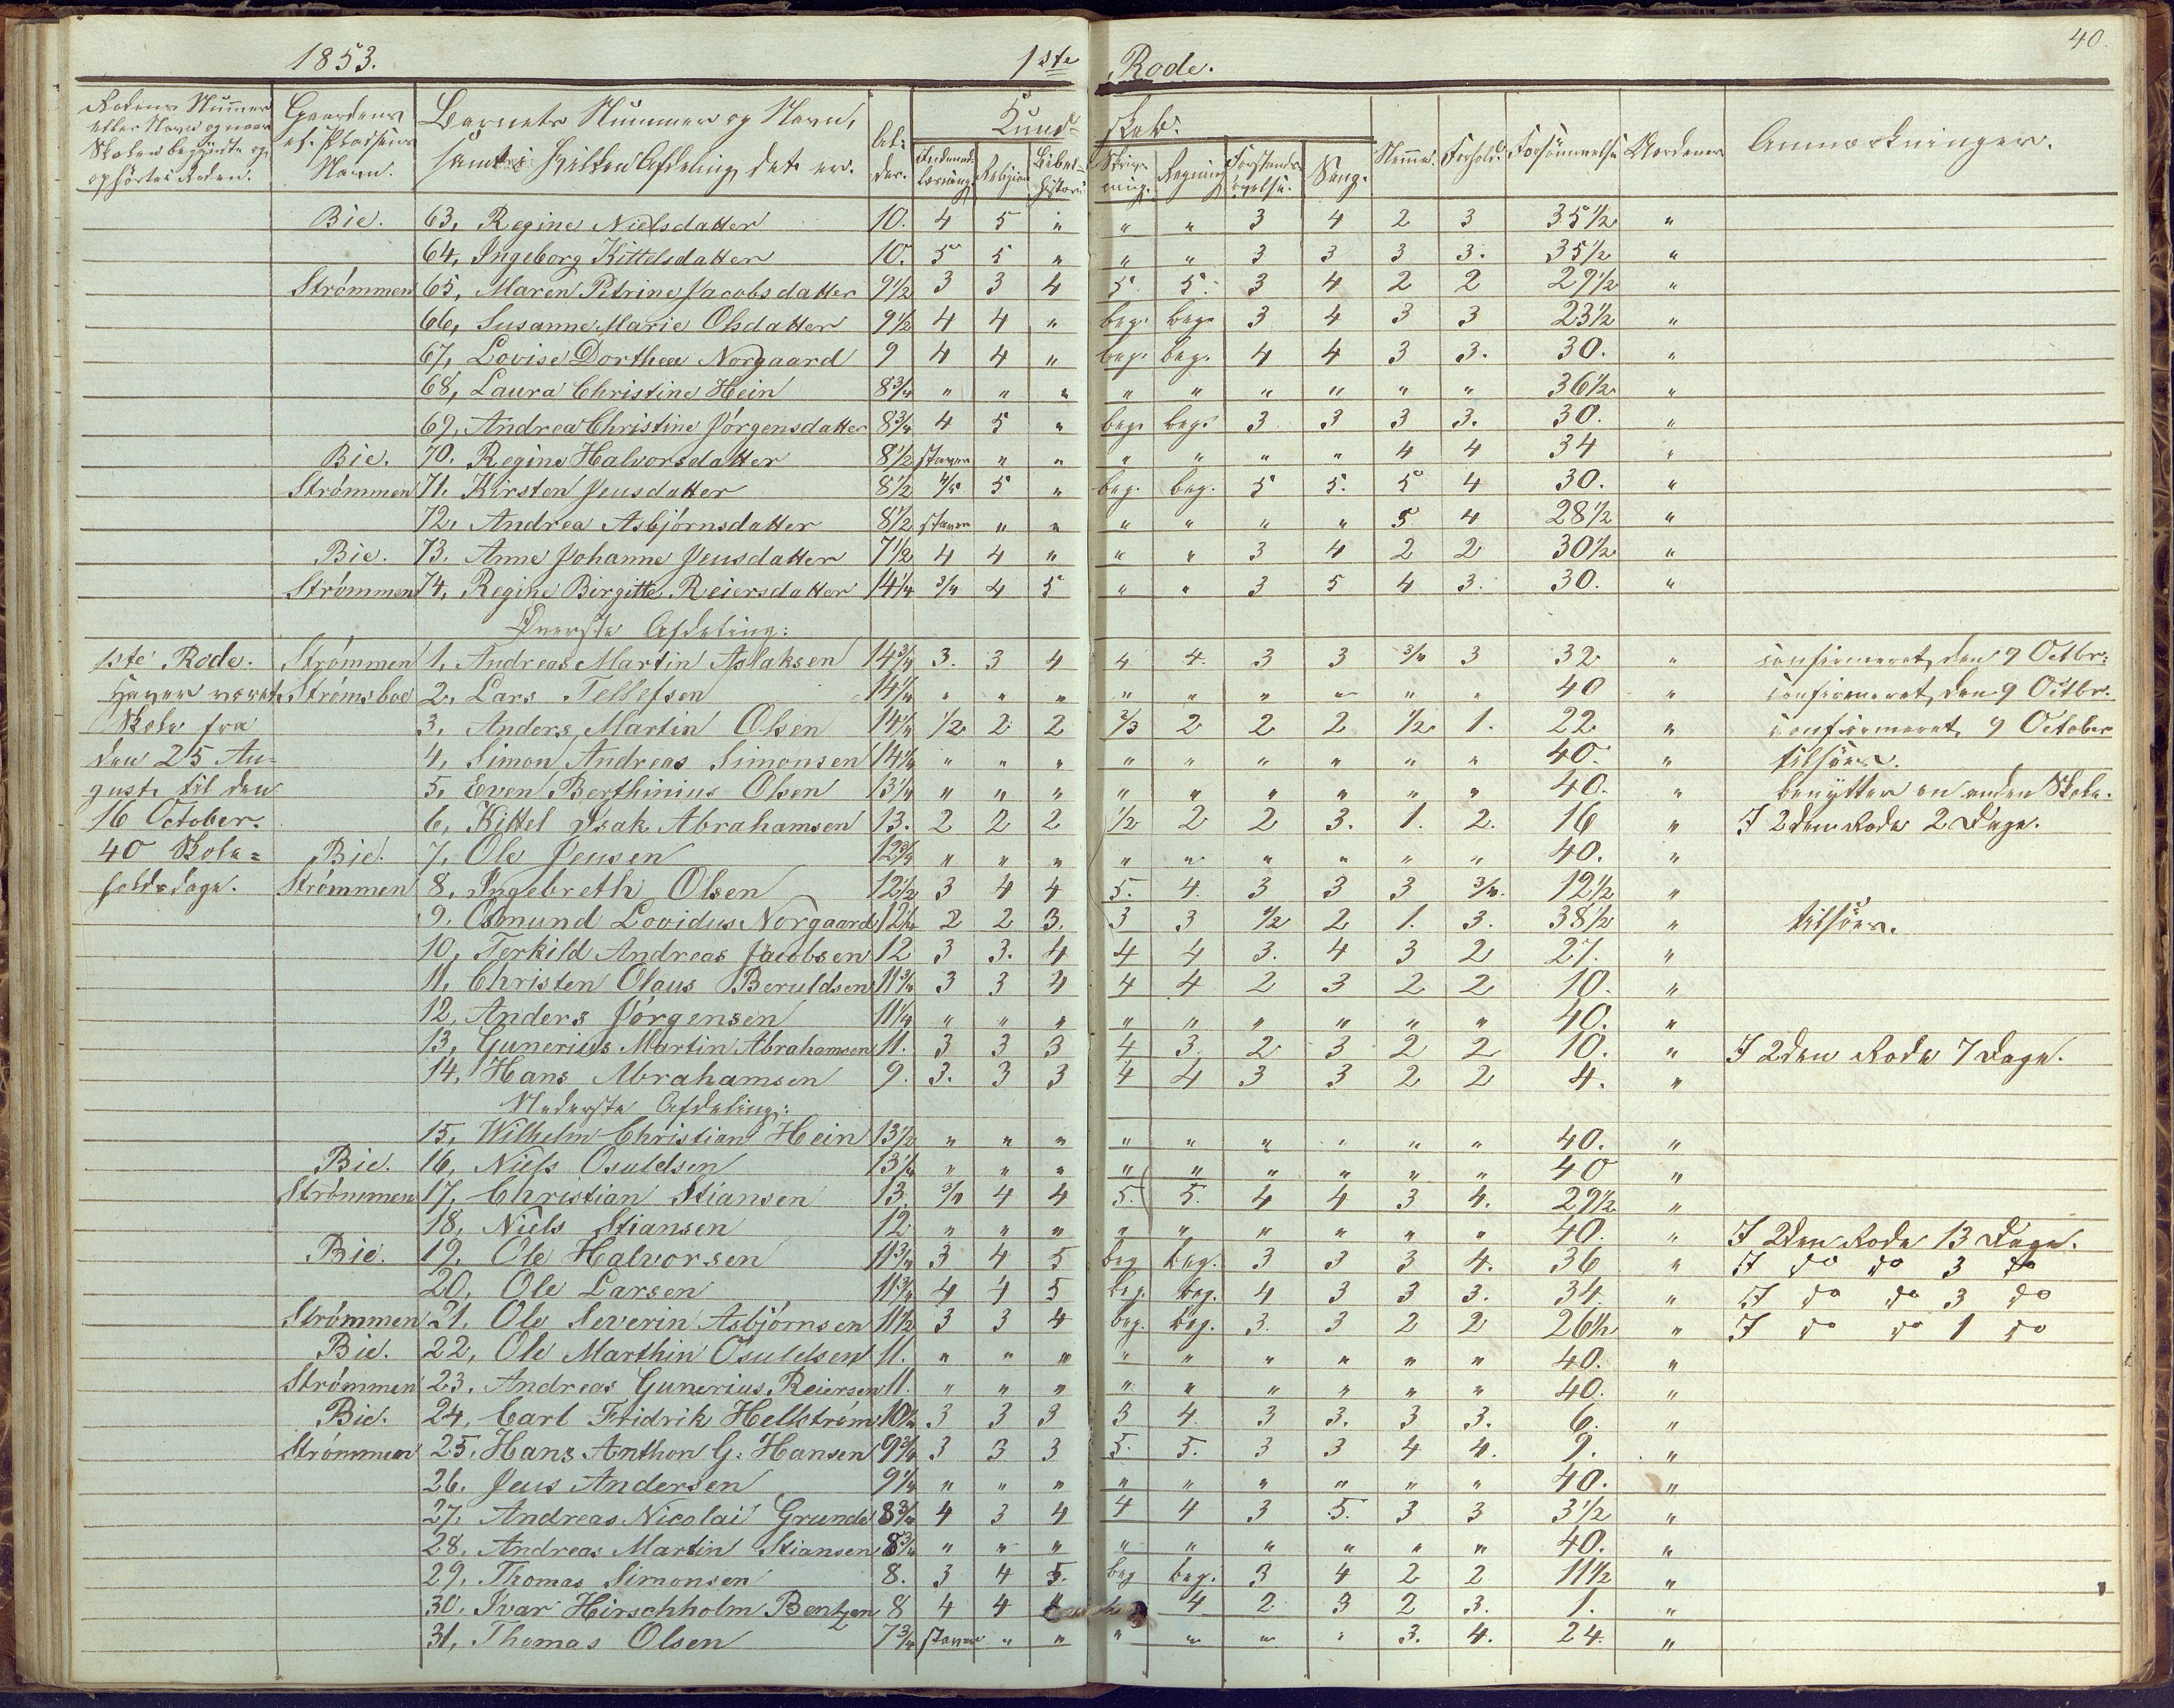 1853. 1ste Rode. 40.
Rodens Nummer eller Navn og naar Skolen begyndte og ophørte i Roden. Gaardens el. Pladsens Navn. Barnets Nummer og Navn, samt i hvilken Afdeling det er. Al-der. Kund-skab. Indenads-læsning. Religion Bibel-historie Skriv-ning. Regning Forstands-øvelse. Sang. Nemme. Forhold. Forsømmelse Anmærkninger.
Bie. 63, Regine Nielsdatter 10. 4 5 " " " 3 4 2 3 35½ "
64, Ingeborg Kittelsdatter 10. 5 5 " " " 3 3 3 3. 35½ "
Strømmen 65, Maren Petrine Jacobsdatter 9½ 3 3 4 5 5. 3 4 2 2 29½ "
66, Susanne Marie Olsdatter 9½ 4 4 " beg. beg. 3 4 3 3 23½ "
67, Lovise Dorthea Norgaard 9 4 4 " beg. beg. 4 4 3 3. 30. "
68, Laura Christine Hein 8¾ " " " " " " " " " 36½ "
69, Andrea Christine Jørgensdatter 8¾ 4 5 " beg. beg. 3 3 3 3. 30. "
Bie. 70. Regine Halvorsdatter 8½ staver " " " " " " 4 4 34 "
Strømmen 71. Kirsten Jensdatter 8½ 4/5 5 " beg. beg. 5 5. 5 4 30. "
72, Andrea Asbjørnsdatter 8½ staver " " " " " " 5 4 28½ "
Bie. 73. Anne Johanne Jensdatter 7½ 4 4 " " " 3 4 2 2 30½ "
Strømmen 74, Regine Birgitte Reiersdatter 14¼ 3/4 4 5 " " 3 5 4 3. 30. "
Øverste Afdeling:
1ste Rode. Strømmen 1, Andreas Martin Aslaksen 14¾ 3. 3 4 4 4. 3 3 3/4 3 32 " confirmeret, den 9 Octbr.
Haver været Strømsboe 2, Lars Tellefsen 14¼ " " " " " " " " " 40 " confirmeret, den 9 Octbr.
Skole fra 3, Anders Martin Olsen 14¼ 1/2 2 2 2/3 2 2 2 1/2 1. 22 " confirmeret, 9 October
den 25 Au- 4, Simon Andreas Simonsen 14¼ " " " " " " " " " 40. " tilsøes.
gust, til den 5, Even Berthinius Olsen 13¼ " " " " " " " " " 40. " benytter en anden Skole.
16 October. 6, Kittel Isak Abrahamsen 13. 2 2 2 1/2 2 2 3. 1. 2. 16 " I 2den Rode 2 Dage.
40 Skole= Bie. 7, Ole Jensen 12¾ " " " " " " " " " 40. "
holdsdage. Strømmen 8, Ingebreth Olsen 12½ 3 4 4 5. 4. 3 3 3 3/4. 12½ "
9. Osmund Lovidus Norgaard 12¼ 2 2 3. 3 3 1/2 2 1. 3. 38½ " tilsøes.
10, Terkild Andreas Jacobsen 12 3 3. 4 4 4 3. 4 3 2 27. "
11, Christen Olaus Beruldsen 11¾ 3 3 4 4 4 2 3 2 2 10. "
12, Anders Jørgensen 11¼ " " " " " " " " " 40. "
13, Gunerius Martin Abrahamsen 11. 3 3 3 4 3. 2 3 2 2 10. " I 2den Rode 7 Dage.
14, Hans Abrahamsen 9. 3. 3 3 4 4 3 3 2 2 4. "
Nederste Afdeling:
15, Wilhelm Christian Hein 13½ " " " " " " " " " 40. "
Bie. 16, Niels Osuldsen 13¼ " " " " " " " " " 40 "
Strømmen 17, Christian Stiansen 13. 3/4 4 4 5. 5. 4 4 3 4. 29½ "
18, Niels Stiansen 12. " " " " " " " " " 40. " I 2den Rode 13 Dage.
Bie. 19, Ole Halvorsen 11¾ 3 4 5 beg. beg. 3 3 3 4. 36 " I do do 3 do
20, Ole Larsen 11¾ 4 4 5 beg. beg. 4 3 3 3. 34. " I do do 3 do
Strømmen 21, Ole Severin Asbjørnsen 11½ 3 3 4 beg. beg. 3. 3 2 2 26½ " I do do 1 do
Bie. 22, Ole Marthin Osuldsen 11. " " " " " " " " " 40. "
Strømmen 23, Andreas Gunerius Reiersen 11. " " " " " " " " " 40. "
Bie. 24, Carl Fridrik Hellstrøm 10½ 3 3 3 3 4. 3 3. 3 3. 6. "
Strømmen 25, Hans Anthon G. Hansen 9¾ 3 3 3 5. 5. 3 3 4 4. 9. "
26. Jens Andersen 9¼ " " " " " " " " " 40. "
27. Andreas Nicolai Grunde 8¾ 4 3 4 4 4 3 5. 3 3 3½ "
28. Andreas Martin Stiansen 8¾ " " " " " " " " " 40. "
29. Thomas Simonsen 8. 3 4 5. beg beg. 3 4 2 2 11½ "
30. Ivar Hirschholm Bentzen 8 4 4 4 2 3 2 3. 1. "
31, Thomas Olsen 7¾ staver " " " " " " 3. 4. 24. "